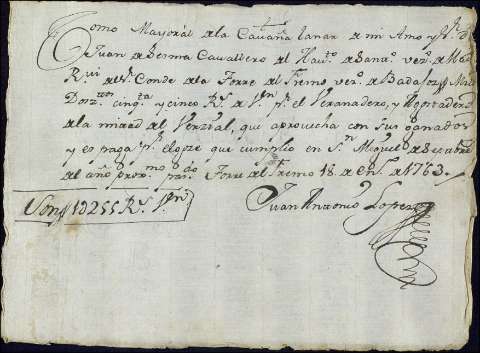 Como Mayoral de la Cavaña lanar de mi Amo y S.r D.n
Juan de Lerma Cavallero del Hav.to de San.go vez.o de Mad
R.vi del S.r Conde de la Torre del Fresno vez.o de Badajoz Mil
Doz.tos cinq.ta y cinco R.s de V.n p.r el Veranadero, y Agostadero
de la mitad del Verzial, que aprovecha con sus ganados
y es paga p.r el goze que cumplio en S.n Miguel de Sep.bre
del año prox.mo pas.do Torre del Fresno 18 de En.o de 1763.
Son 1D255 R.s V.n
Juan Antonio Lopez